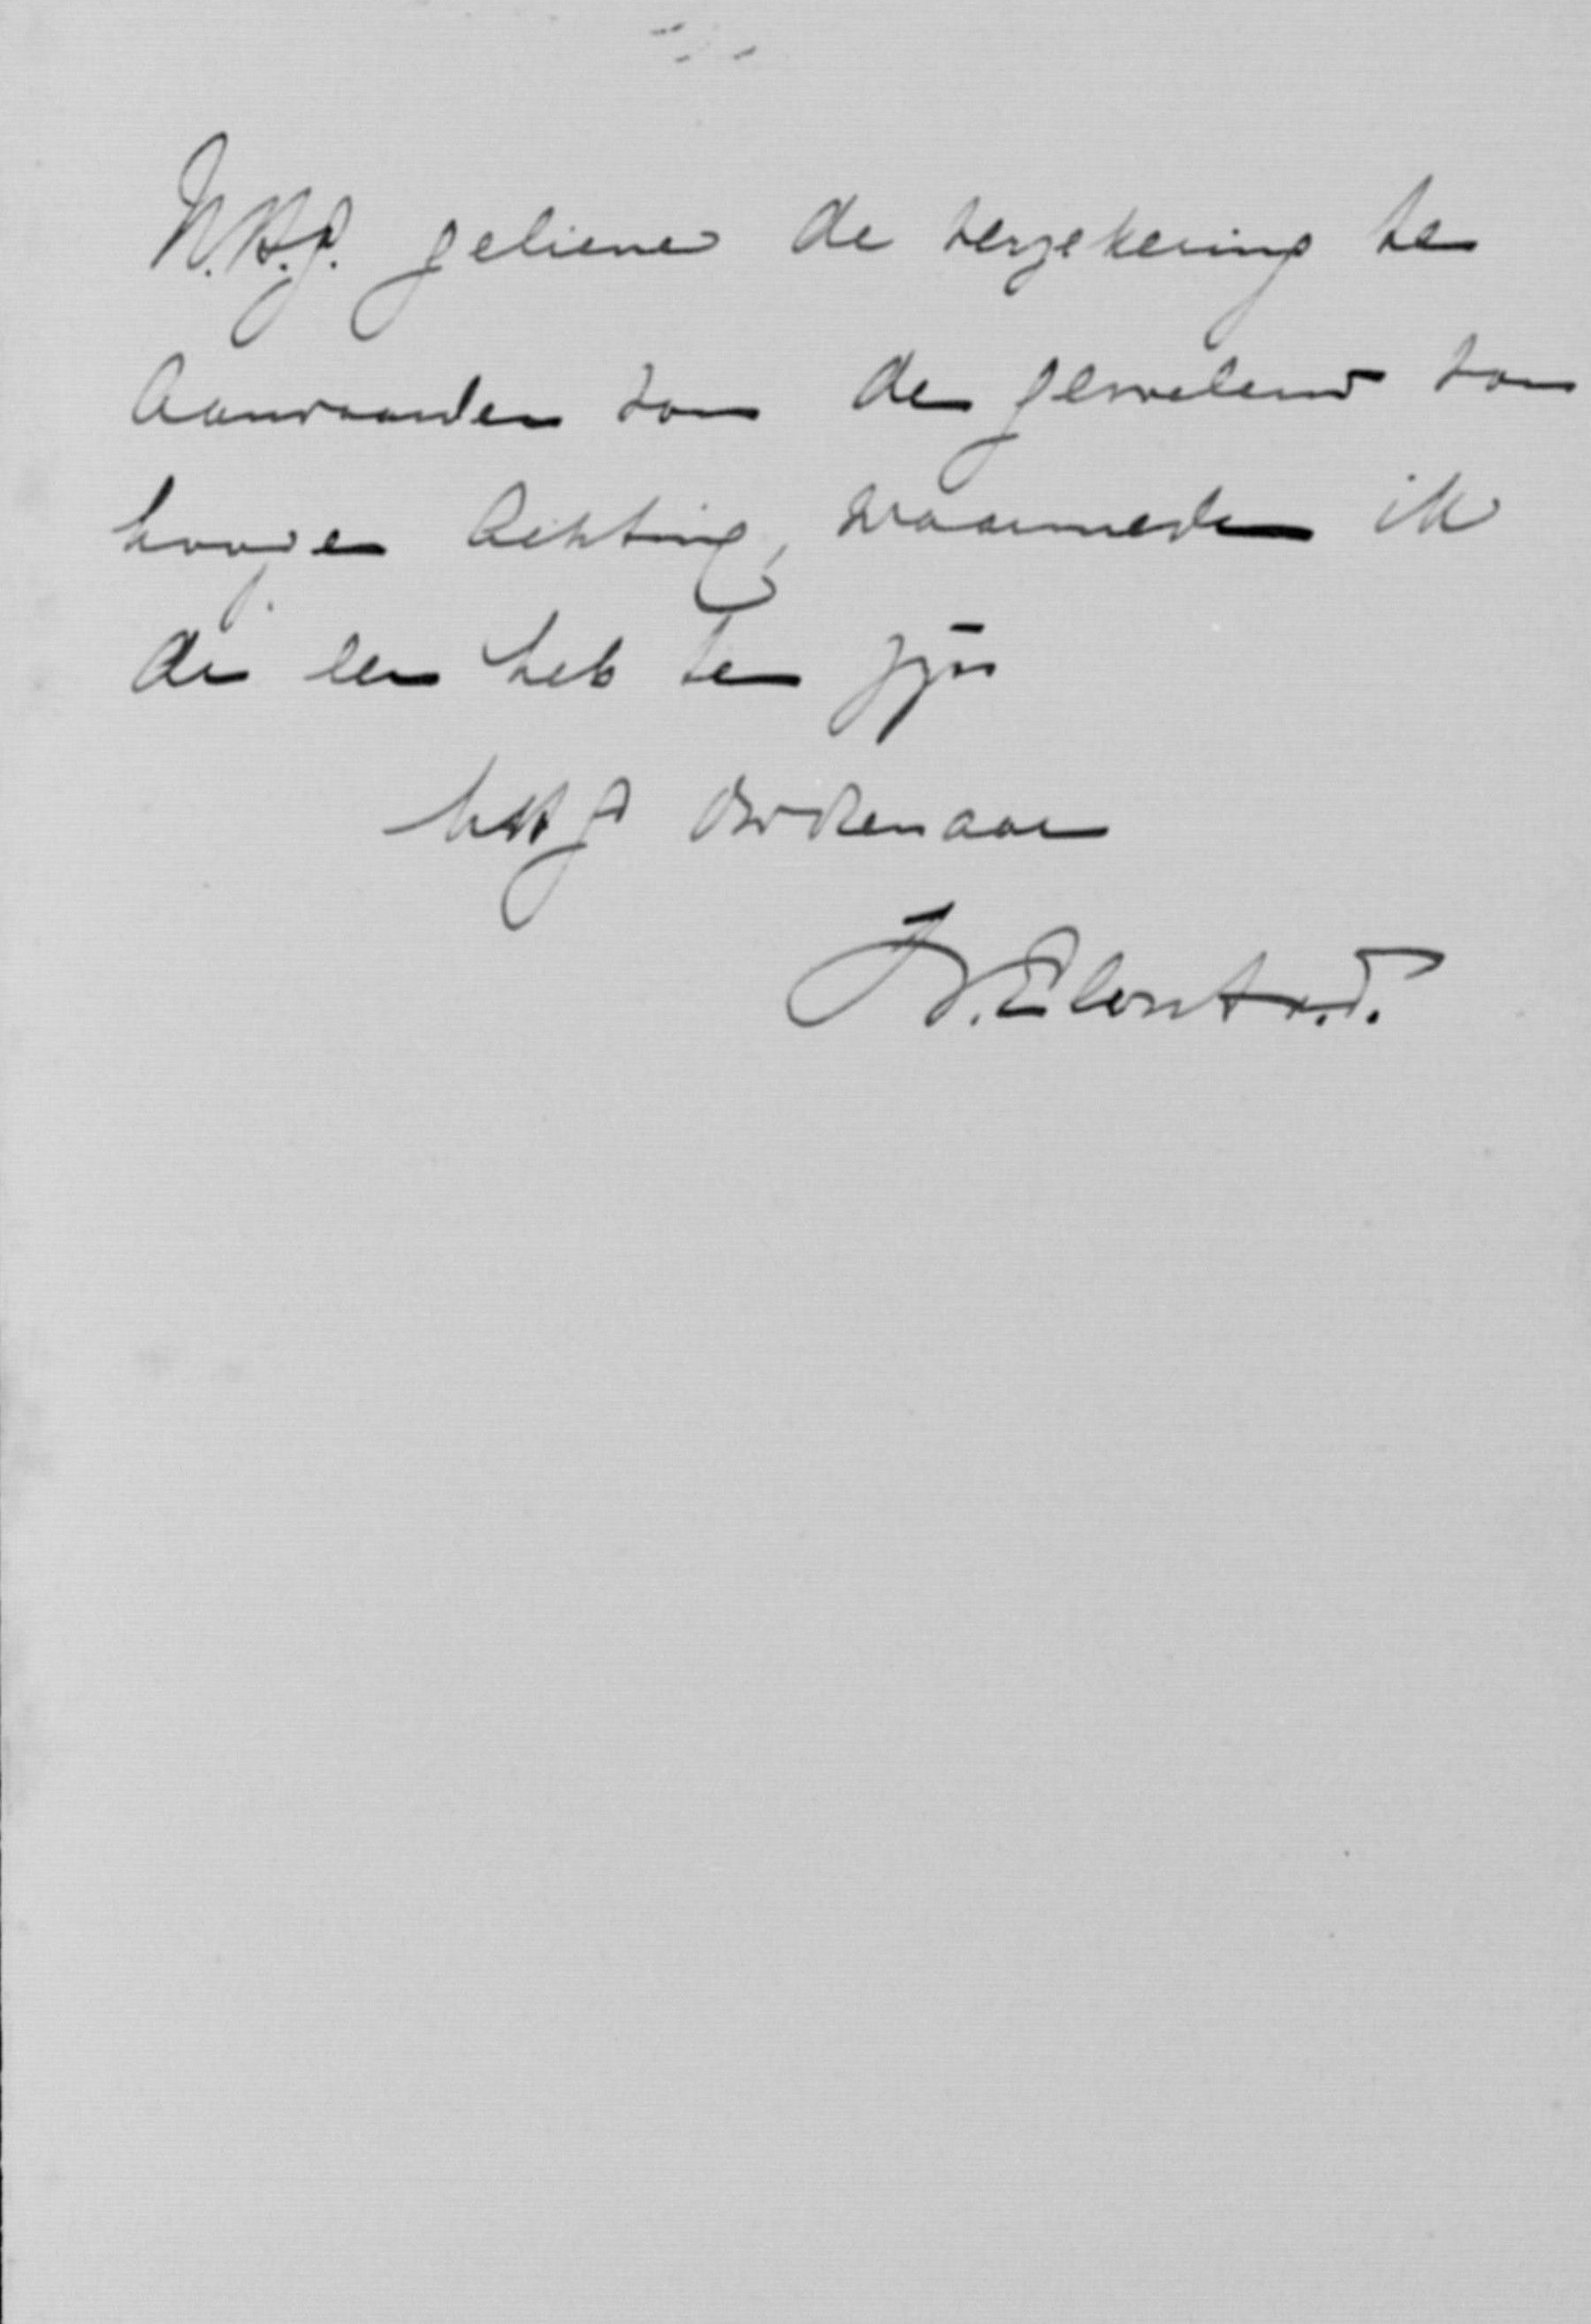 U.H.G. gelieve de verzekering te
aanvaarden van de gevoelens van
hooge achting, waarmede ik
de eer heb te zijn
UHG dw dienaar